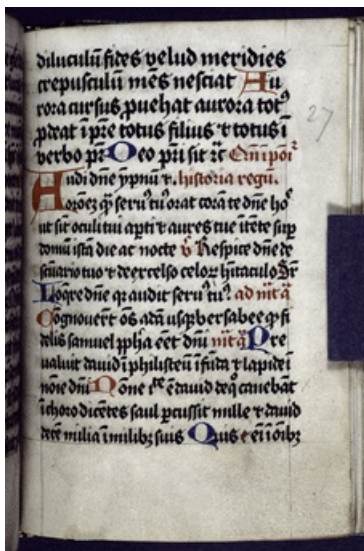 diluculū fides velud meridies
crepusculū mēs nesciat Au
rora cursus ꝓuehat aurora totꝰ
ꝓdeat ī pr̄e totus filius ⁊ totus ī
verbo pr̄ Deo pr̄i sit
27
Audi dn̄e ypnū ⁊. historia regū.
seruꝰ tuꝰ orat corā te dn̄e ho
ut sīt oculi tui apti ⁊ aures tue ītēte suꝑ
domū istā die ac nocte ꝟ Respice dn̄e de
scūario tuo ⁊ de excelso celoꝝ hītaculo
Loq̄re dn̄e qꝛ audit seruꝰ tuꝰ ad
Cognouert̄ oēs a dan usqꝫ bersabee ꝙ fi
delis samuel ꝓpha eēt dn̄i Pre
valuit dauid ī philisteū ī fūda ⁊ lapide ī
noīe dn̄i Nōne ē dauid de q̄ canebāt
ī choro dicētes saul ꝑcussit mille ⁊ dauid
decē milia ī milibꝫ suis Quis ē ī oībꝫ